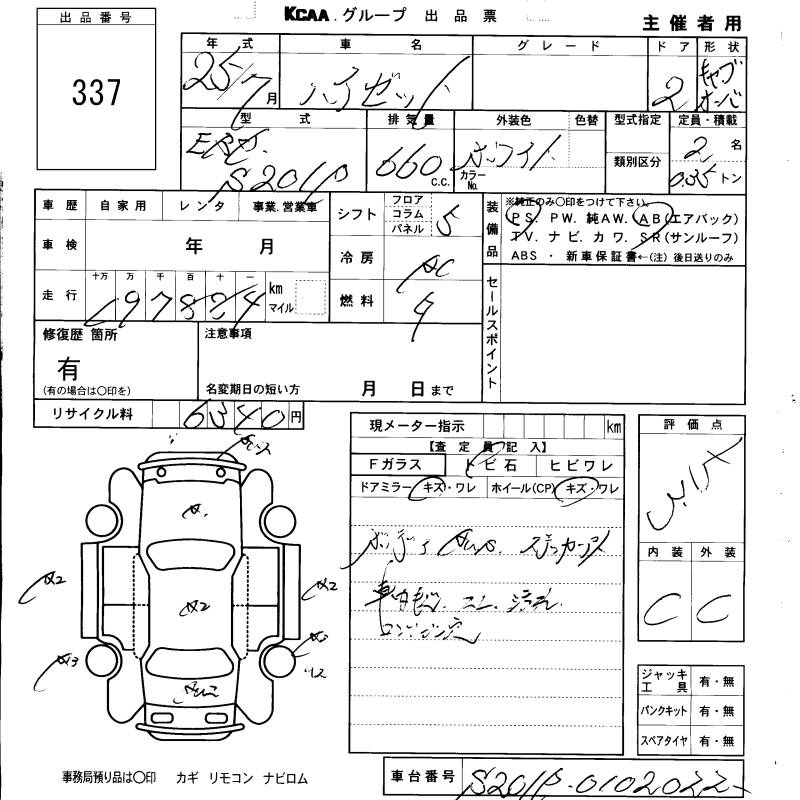 出品番号
337
KCAA.グループ 出品票
主催者用
年式 車名 グレード ドア 形状
25/7月 ハイゼット 2 キャブオーバ
型式 排気量 外装色 色替 型式指定 定員・積載
S201P 660 c.c. ホワイト カラーNo. 類別区分 2名 0.35トン
車歴 自家用 レンタ 事業.営業車
車検 年 月
走行 十万 万 千 百 十 一 km マイル
197824
シフト フロア コラム パネル 5
冷房 AC
燃料
装備品 ※純正のみ○印をつけて下さい。
PS. PW. 純AW. AB(エアバック)
TV. ナビ. カワ. SR(サンルーフ)
ABS ・ 新車保証書←(注) 後日送りのみ
セールスポイント
修復歴 箇所
有
(有の場合は○印を)
注意事項
名変期日の短い方 月 日まで
リサイクル料 6340円
現メーター指示 km
【査定員記入】
Fガラス トビ石 ヒビワレ
ドアミラー キズ・ワレ ホイール(CP) キズ・ワレ
評価点
内装 外装
C C
A2
A2
A2
A3
ジャッキ工具 有・無
パンクキット 有・無
スペアタイヤ 有・無
事務局預り品は○印 カギ リモコン ナビロム
車台番号 S201P-0102022